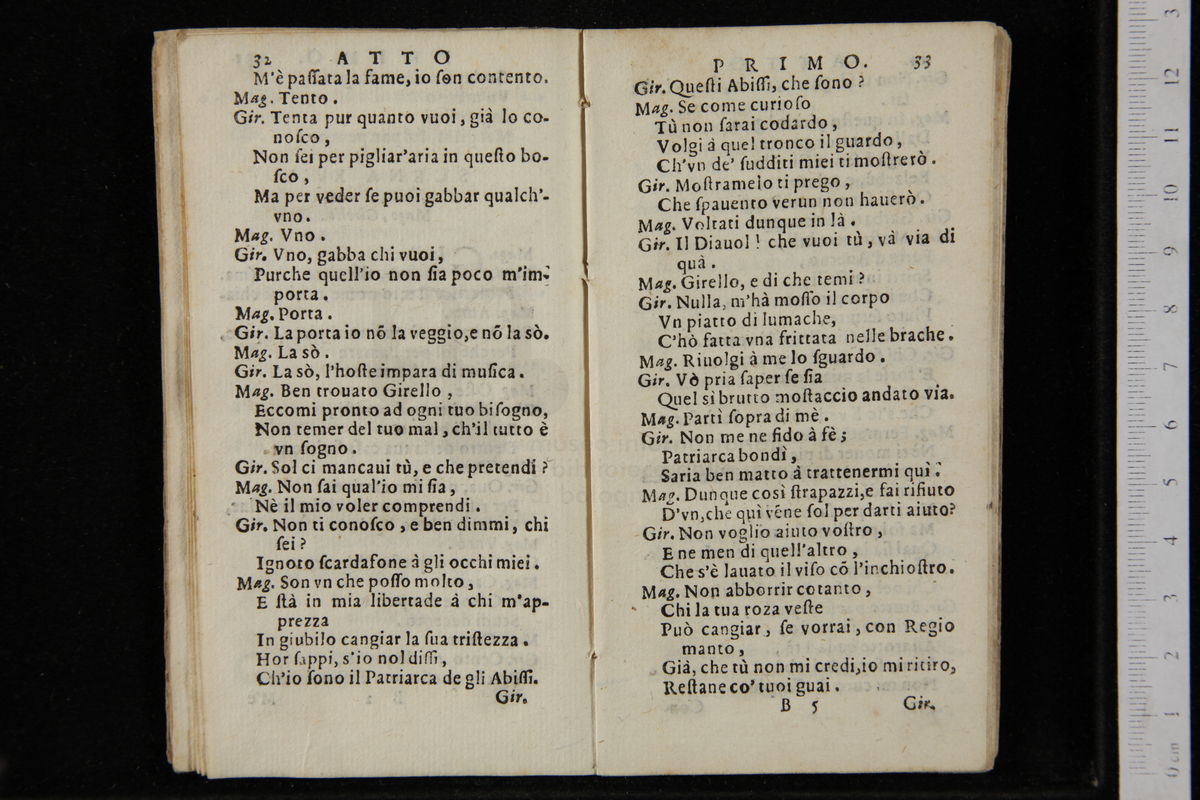 32 ATTO
M'è paſſata la fame, io ſon contento.
Mag. Tento.
Gir. Tenta pur quanto vuoi, già lo co-
noſco,
Non ſei per pigliar'aria in queſto bo-
ſco,
Ma per veder ſe puoi gabbar qualch'-
vno.
Mag. Vno.
Gir. Vno, gabba chi vuoi,
Purche quell'io non ſia poco m'im-
porta.
Mag. Porta.
Gir. La porta io nõ la veggio, e nõ la sò.
Mag. La sò.
Gir. La sò, l'hoſte impara di muſica.
Mag. Ben trouato Girello,
Eccomi pronto ad ogni tuo biſogno,
Non temer del tuo mal, ch'il tutto è
vn ſogno.
Gir. Sol ci mancaui tù, e che pretendi?
Mag. Non ſai qual'io mi ſia,
Nè il mio voler comprendi.
Gir. Non ti conoſco, e ben dimmi, chi
ſei?
Ignoto ſcardafone à gli occhi miei.
Mag. Son vn che poſſo molto,
E ſtà in mia libertade à chi m'ap-
prezza
In giubilo cangiar la ſua triſtezza.
Hor ſappi, s'io nol diſſi,
Ch'io ſono il Patriarca de gli Abiſſi.
Gir.
PRIMO. 33
Gir. Queſti Abiſſi, che ſono?
Mag. Se come curioſo
Tù non ſarai codardo,
Volgi à quel tronco il guardo,
Ch'vn de' ſudditi miei ti moſtrerò.
Gir. Moſtramelo ti prego,
Che ſpauento verun non hauerò.
Mag. Voltati dunque in là.
Gir. Il Diauol! che vuoi tù, và via di
quà.
Mag. Girello, e di che temi?
Gir. Nulla, m'hà moſſo il corpo
Vn piatto di lumache,
C'hò fatta vna frittata nelle brache.
Mag. Riuolgi à me lo ſguardo.
Gir. Vò pria ſaper ſe ſia
Quel sì brutto moſtaccio andato via.
Mag. Partì ſopra di mè.
Gir. Non me ne fido à fè;
Patriarca bondì,
Saria ben matto à trattenermi quì.
Mag. Dunque così ſtrapazzi, e fai rifiuto
D'vn, che quì vẽne ſol per darti aiuto?
Gir. Non voglio aiuto voſtro,
E ne men di quell'altro,
Che s'è lauato il viſo cõ l'inchioſtro.
Mag. Non abborrir cotanto,
Chi la tua roza veſte
Può cangiar, ſe vorrai, con Regio
manto,
Già, che tù non mi credi, io mi ritiro,
Reſtane co' tuoi guai.
B 5 Gir.
0 cm 1 2 3 4 5 6 7 8 9 10 11 12 3